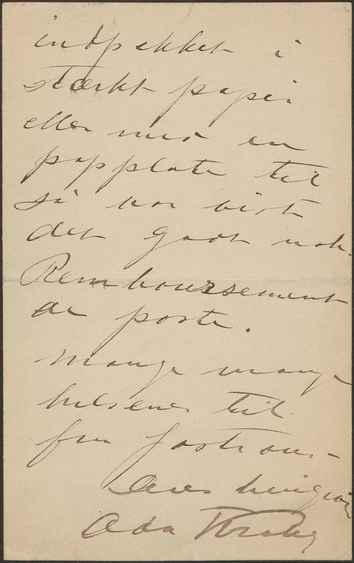 indpakket i
stærkt papir
eller med en
papplate til
så var vist
det godt nok.
Remboursement
de poste.
Mange mange
hilsener til
fru
Deres hengivne
Oda Krohg